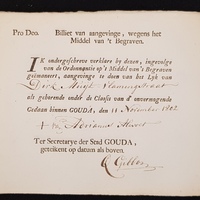 Pro Deo. Billiet van aangevinge, wegens het
Middel van 't Begraven.
IK ondergeschreve verklare by dezen, ingevolge
van de Ordonnantie op 't Middel van 't Begraven
geëmaneert, aangevinge te doen van het Lyk van
Dirk
als gehorende onder de Classis van 't onvermogende
Gedaan binnen GOUDA, den 11 November 1802
Adrianus
Ter Secretarye der Stad GOUDA,
geteikent op datum als boven.